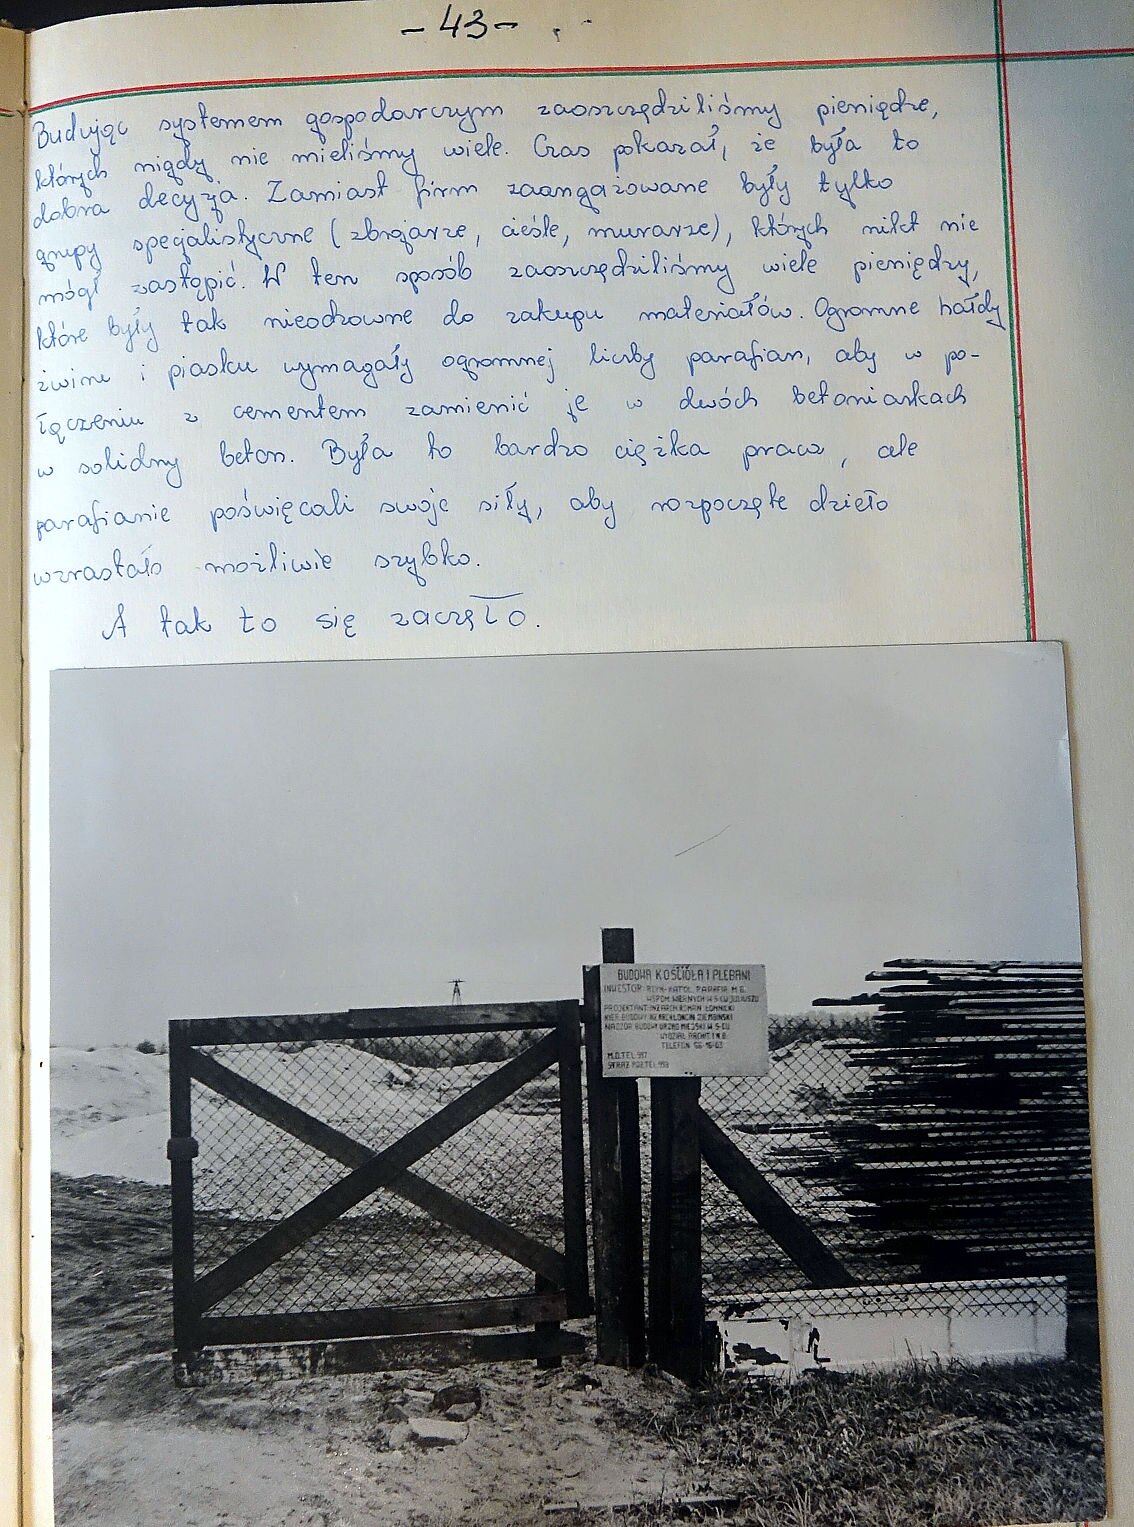 - 43 -
Budując systemem gospodarczym zaoszczędziliśmy pieniądze,
których nigdy nie mieliśmy wiele. Czas pokazał, że była to
dobra decyzja. Zamiast firm zaangażowane były tylko
grupy specjalistyczne (zbrojarze, cieśle, murarze), których nikt nie
mógł zastąpić. W ten sposób zaoszczędziliśmy wiele pieniędzy,
które były tak nieodzowne do zakupu materiałów. Ogromne hałdy
żwiru i piasku wymagały ogromnej liczby parafian, aby w po-
łączeniu z cementem zamienić je w dwóch betoniarkach
w solidny beton. Była to bardzo ciężka praca, ale
parafianie poświęcali swoje siły, aby rozpoczęte dzieło
wzrastało możliwie szybko.
A tak to się zaczęło.
BUDOWA KOŚCIOŁA I PLEBANI
INWESTOR: RZYM-KATOL. PARAFIA M.B.
WSPOM. WIERNYCH W S-CU JULIUSZU
PROJEKTANT: INŻ. ARCH. ROMAN ŁOMNICKI
KIER. BUDOWY: ZIEMBIŃSKI
NADZÓR BUDOWY: URZĄD MIEJSKI W S-CU
WYDZIAŁ ARCHIT. I N.B.
TELEFON 66-16-03
M.O. TEL. 997
STRAŻ POŻ. TEL. 998